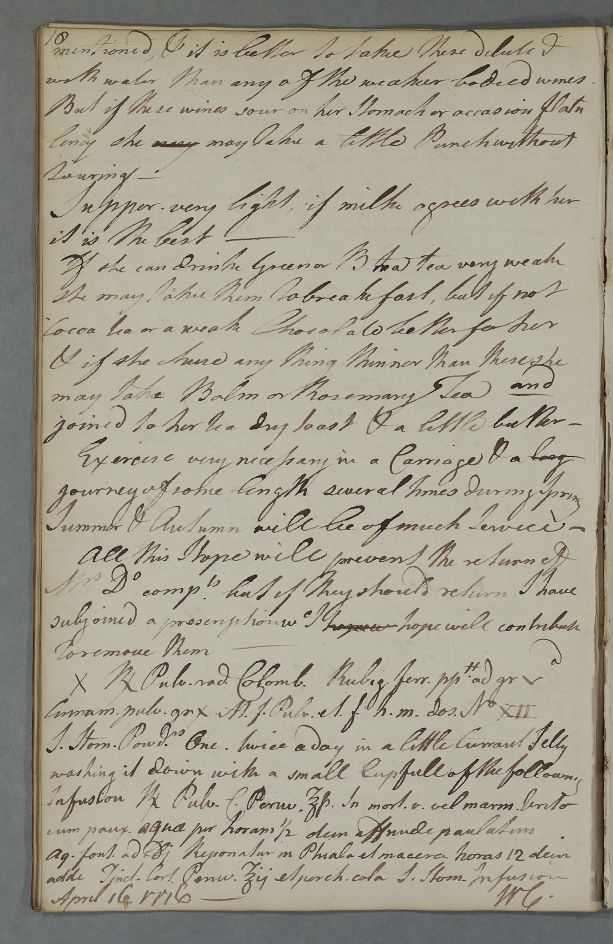 18
mentioned & it is better to take these diluted
with water than any of the weaker bodied wines.
But if these wines sour on her Stomach or occasion flatu
lency she may may take a little Punch without
Souring —
Supper very light, if milk agrees with her
it is the best —
If she can drink Green or B tea tea very weak
she may take them to breakfast, but if not
Cocoa tea or a weak Chocolate better for her
& if she chuse any thing thinner than these, she
may take Balm or Rosemary Tea and
joined to her tea dry toast & a little butter —
Exercise very necessary in a Carriage & a long
journey of some length several times during Spring
Summer & Autumn will be of much Service —
All this I hope will prevent the return of
Mrs Do compts but if they should return I have
subjoined a prescription wc I hope will contribute
to remove them —
X ℞ Pulv. rad. Colomb. Rubig. ferr. pptt ad gr v
Cinnam. pulv. gr x M. f. Pulv. et f. h. m. dos. No XII
S. Stom. Powdrs One twice a day in a little Currant Jelly
washing it down with a small Cupfull of the following
Infusion ℞ Pulv. C. Peruv. ℥ß. In mort. v. vel marm. terito
cum paux. aquæ per horam 1/2 dein affunde paulatim
Aq. font. ad Reponatur in Phiala et macera horas 12 dein
adde Tinct. Cort. Peruv. ℥ij et col a S. Stom. Infusion
April 16 1776 — WC.